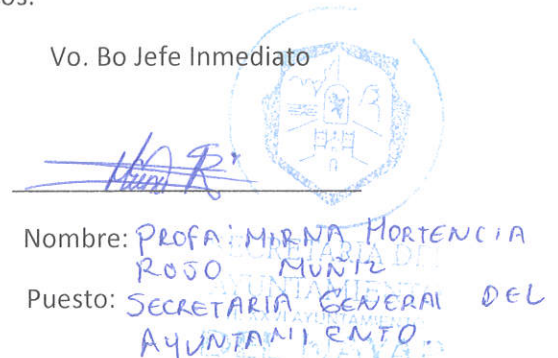 os.
Vo. Bo Jefe Inmediato
Nombre: PROFA. MIRNA HORTENCIA
ROJO MUÑIZ
Puesto: SECRETARIA GENERAL DEL
AYUNTAMIENTO.